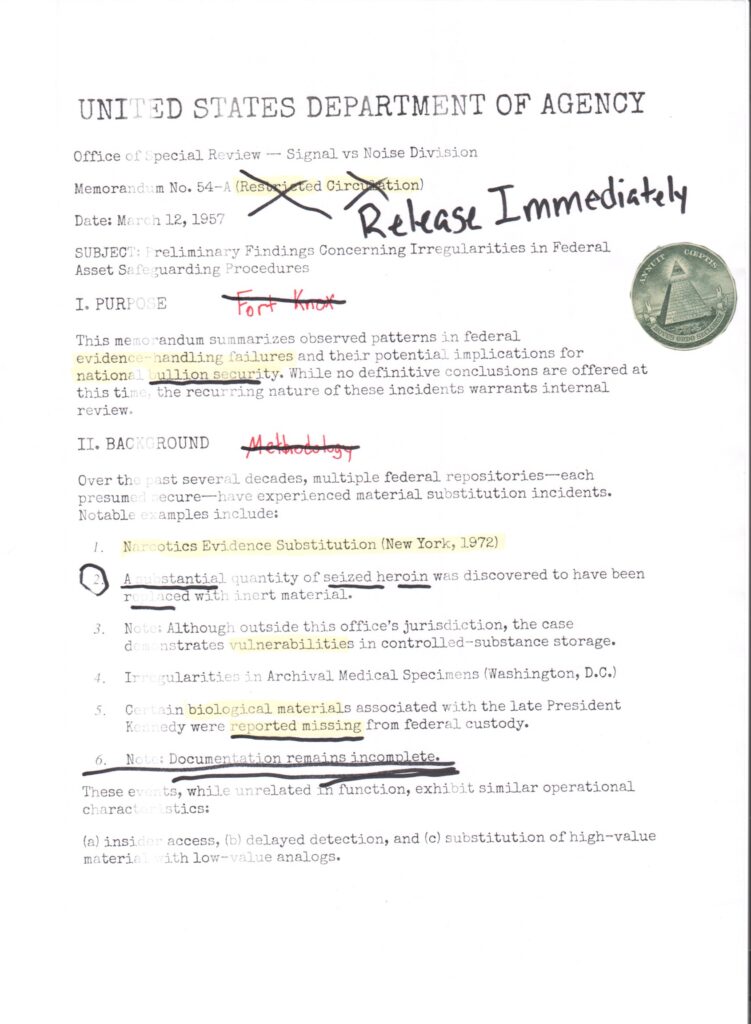 UNITED STATES DEPARTMENT OF AGENCY
Office of Special Review — Signal vs Noise Division
Memorandum No. 54-A (Restricted Circulation)
Release Immediately
Date: March 12, 1957
SUBJECT: Preliminary Findings Concerning Irregularities in Federal
Asset Safeguarding Procedures
ANNUIT CŒPTIS
NOVUS ORDO SECLORUM
I. PURPOSE Fort Knox
This memorandum summarizes observed patterns in federal
evidence-handling failures and their potential implications for
national bullion security. While no definitive conclusions are offered at
this time, the recurring nature of these incidents warrants internal
review.
II. BACKGROUND Methodology
Over the past several decades, multiple federal repositories—each
presumed secure—have experienced material substitution incidents.
Notable examples include:
1. Narcotics Evidence Substitution (New York, 1972)
2. A substantial quantity of seized heroin was discovered to have been
replaced with inert material.
3. Note: Although outside this office's jurisdiction, the case
demonstrates vulnerabilities in controlled-substance storage.
4. Irregularities in Archival Medical Specimens (Washington, D.C.)
5. Certain biological materials associated with the late President
Kennedy were reported missing from federal custody.
6. Note: Documentation remains incomplete.
These events, while unrelated in function, exhibit similar operational
characteristics:
(a) insider access, (b) delayed detection, and (c) substitution of high-value
material with low-value analogs.